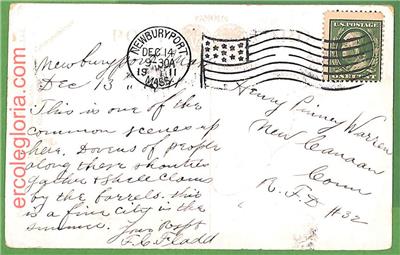 NEWBURYPORT
DEC 14
9-30A
19 11
MASS.
U.S. POSTAGE
Newburyport
Dec 13 " 11
This is one of the
common scenes up
here. Dozens of people
along these shanties
gather & shell clams
by the barrels. This
is a fine city in the
summer. Your
Henry Pinney Warren
New Canaan
Conn
R.F.D #32
ercolegloria.com